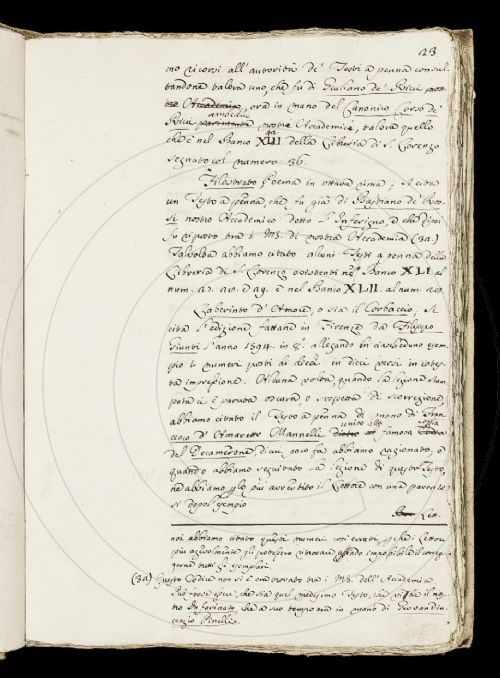 23
mo ricorsi all' autorità de' Testi a penna consul-
tandone talora uno, che fu di Giuliano de' Ricci
Accademico, ora in mano del Canonico Corso de'
Ricci parimente nostro Accademico, talora quello
che è nel Banco XLII della Libreria di S. Lorenzo
segnato col numero 36.
Filostrato Poema in ottava rima; Si cita
un Testo a penna che fu già di Bastiano de' Ros-
si nostro Accademico detto l'Inferigno, e che è poi
riposto tra i MS. di nostra Accademia (32.)
Talvolta abbiamo citato alcuni Testi a penna della
Libreria di S. Lorenzo esistenti nel Banco XLI al
num. e nel Banco XLII. al num.
Laberinto d' Amore, o sia il Corbaccio, Si
cita l'edizione fattane in Firenze da Filippo
Giunti l'anno 1594. in 8.° allegando in ciascheduno esem-
pio i numeri posti di dieci in dieci versi in cotes-
ta impressione. Alcuna volta, quando la lezione stam-
pata ci è paruta oscura o sospetta di scorrezione,
abbiamo citato il Testo a penna di mano di Fran-
cesco d' Amaretto Mannelli unito alla famosa copia
del Decamerone di cui poco fa abbiamo ragionato, e
quando abbiamo seguitato la lezione di questo Testo,
ne abbiamo per lo più avvertito il Lettore con una parentesi
dopo l'esempio
Lett.
noi abbiamo citato questi numeri così errati, perchè i Lettori
più agevolmente gli potessero ritrovare essendo impossibile il correg-
gerne tutti gli esemplari.
(32) Questo Codice non si è ora trovato tra i MS. dell' Accademia.
Può forse essere, che sia quel medesimo Testo, che citò il no-
stro Infarinato, che a suo tempo era in mano di Giovan Vin-
cenzio Pinelli.